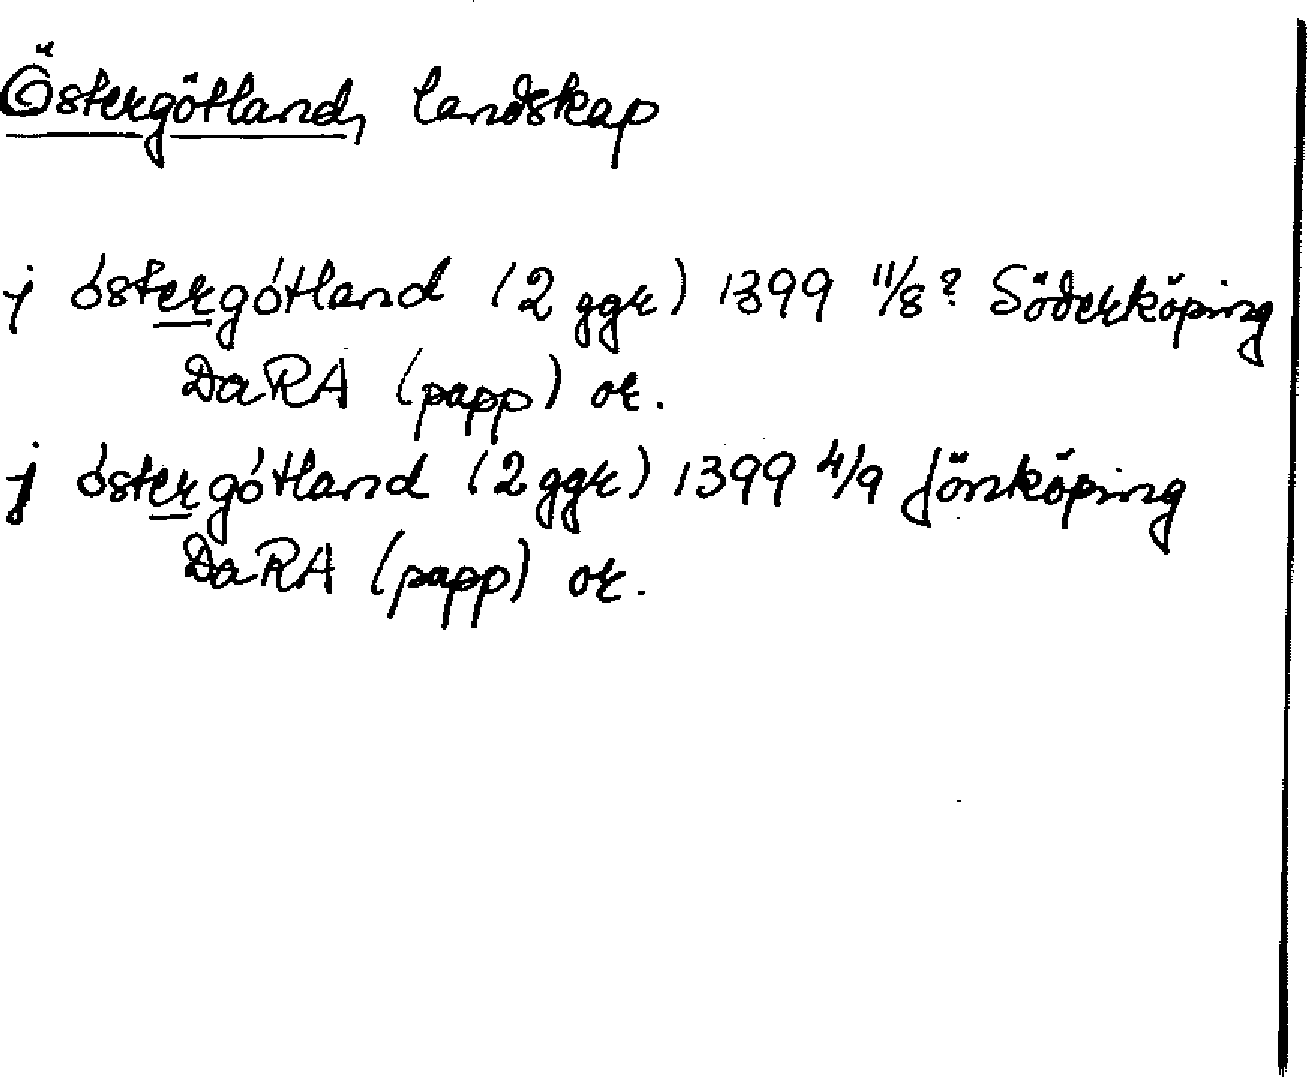 Östergötland, landskap
j östergótland (2 ggr) 1399 11/8? Söderköping
DaRA (papp) or.
j óstergótland (2 ggr) 1399 4/9 Jönköping
DaRA (papp) or.